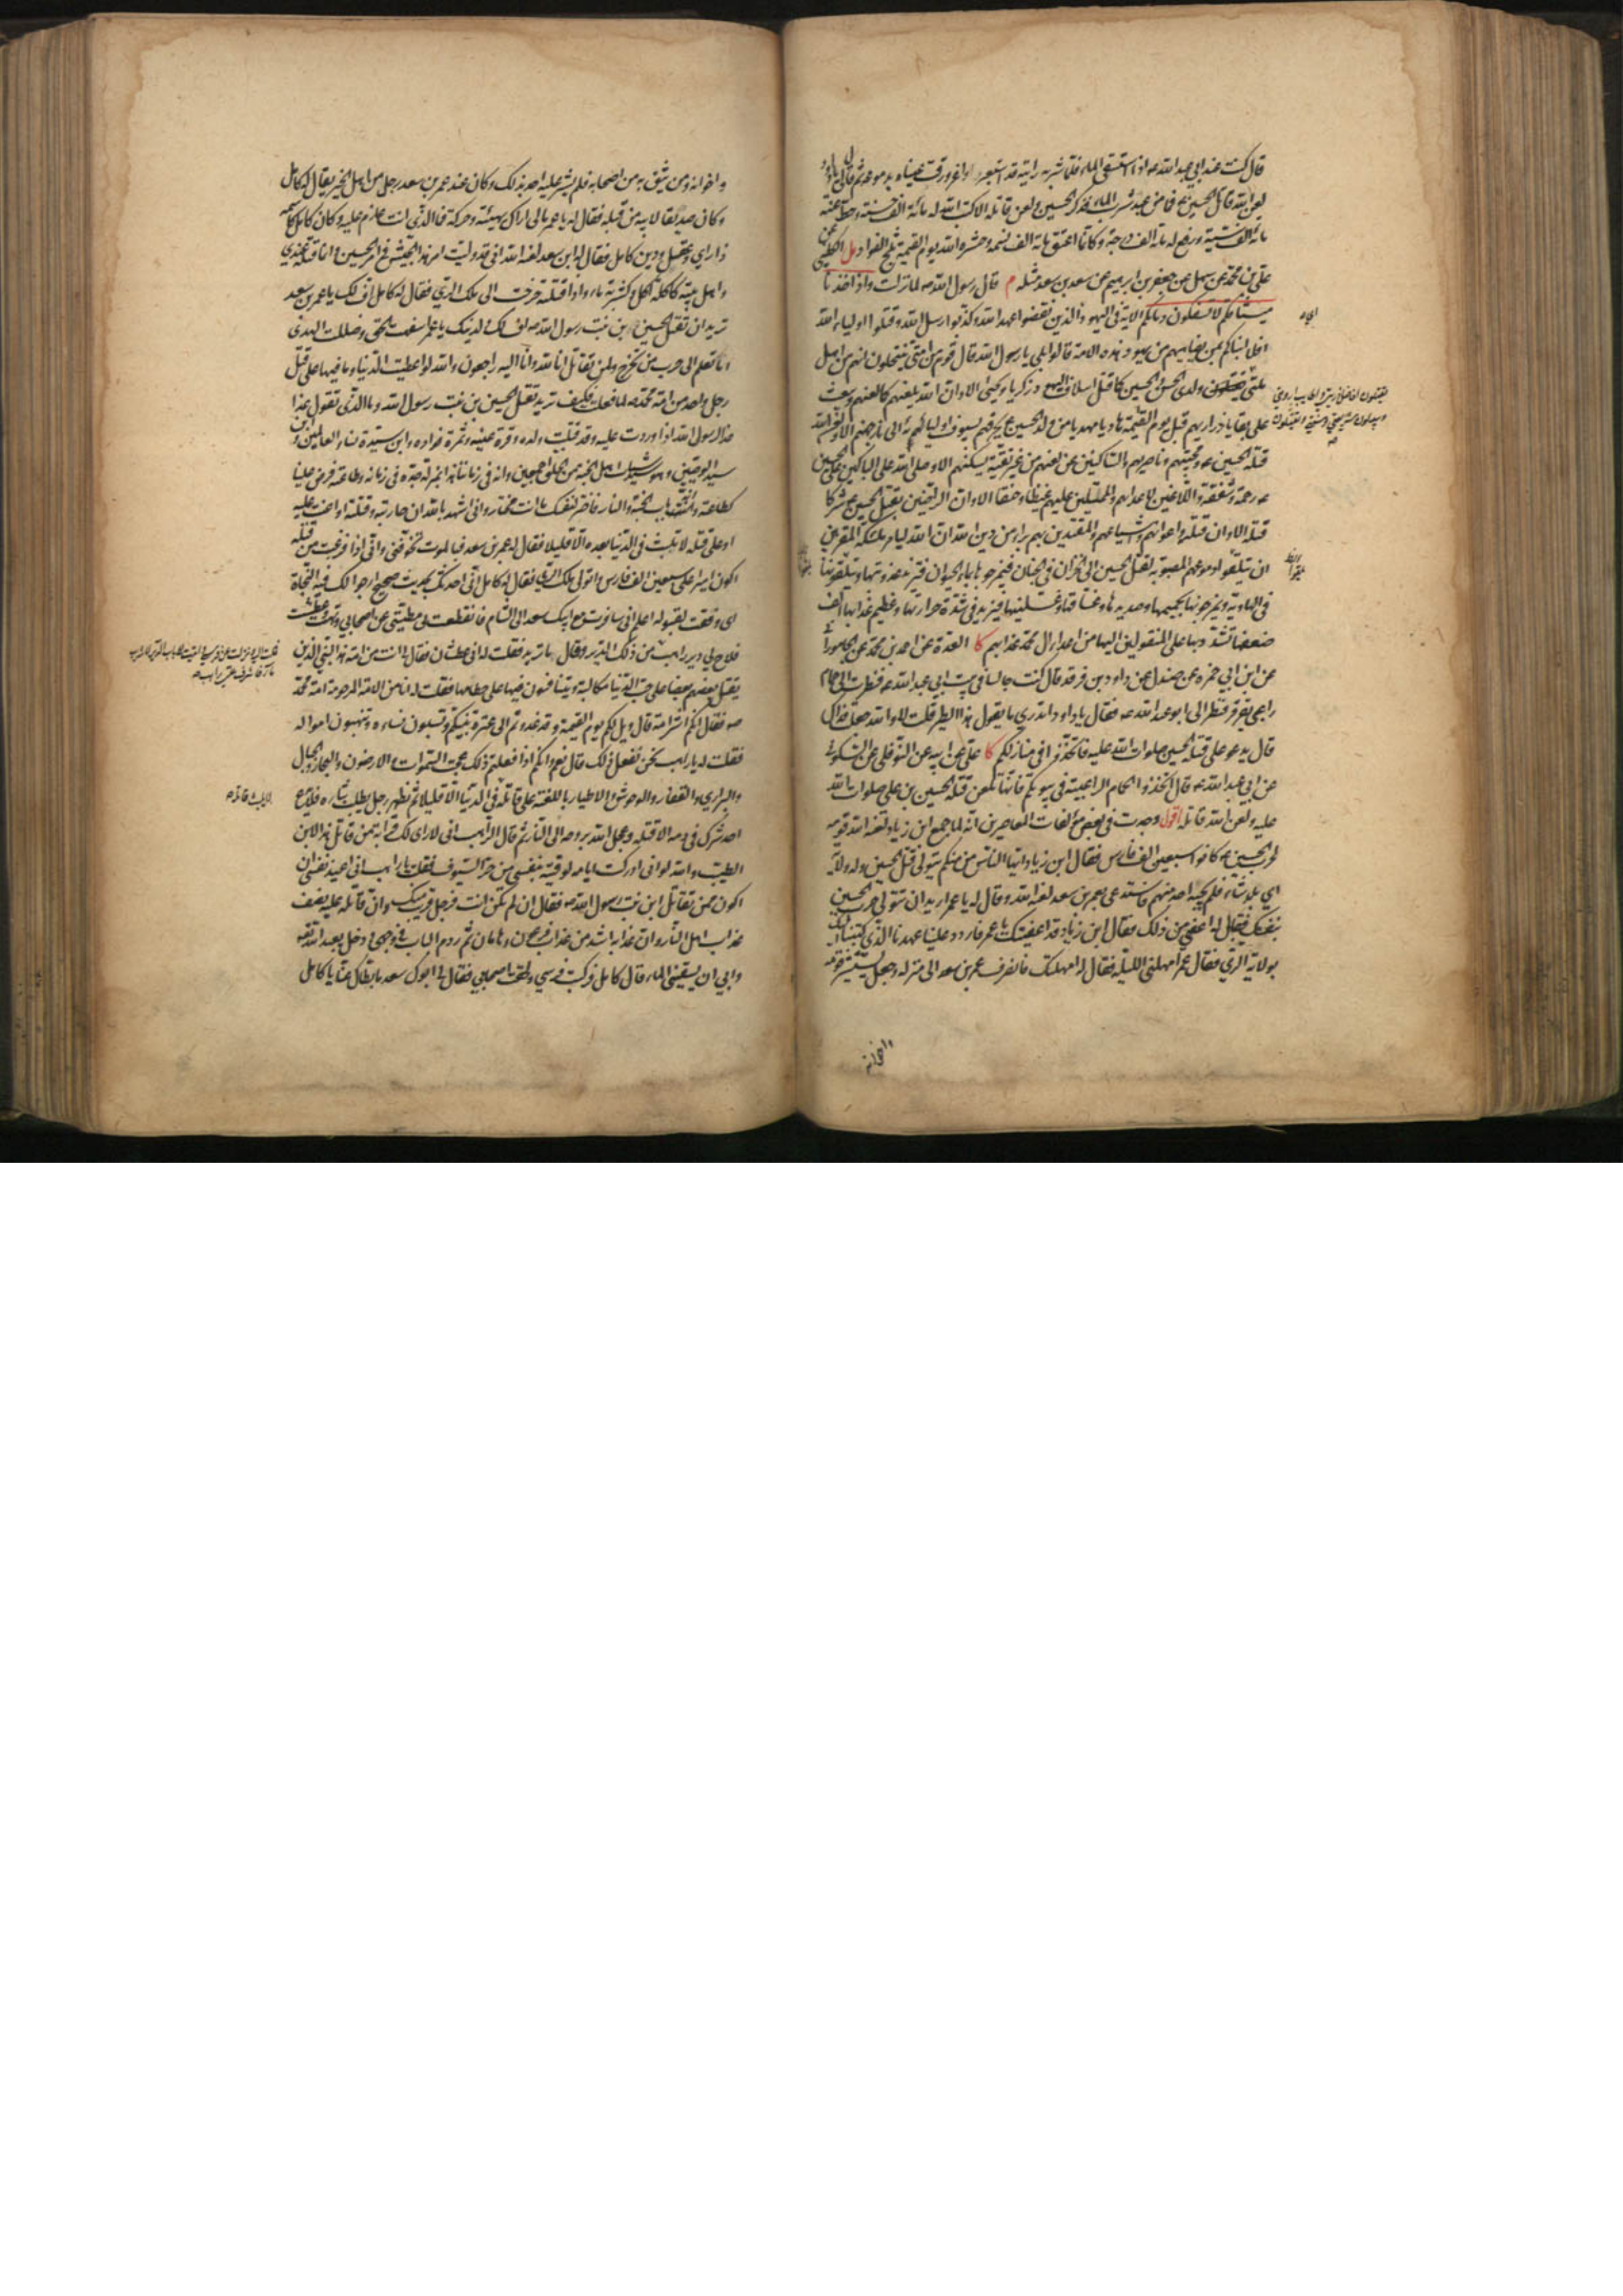 قال كنت عند ابي عبد الله ع اذا استسقى الماء فلما شربه رايته قد استعبر واغرورقت عيناه بدموعه ثم قال لي يا داود
لعن الله قاتل الحسين ع فما من عبد شرب الماء فذكر الحسين ولعن قاتله الا كتب الله له مائة الف حسنة وحط عنه
مائة الف سيئة ورفع له مائة الف درجة وكانما اعتق مائة الف نسمة وحشره الله يوم القيمة ثلج الفواد مل الكليني عن
علي بن محمد عن سهل عن جعفر بن ابرهيم عن سعد بن سعد مثله م قال رسول الله ص لما نزلت واذ اخذنا
ميثاقكم لا تسفكون دماءكم الاية في اليهود الذين نقضوا عهد الله وكذبوا رسل الله وقتلوا اولياء الله
افلا انبئكم بمن يضاهيهم من يهود هذه الامة قالوا بلى يا رسول الله قال قوم من امتي ينتحلون انهم من اهل
ملتي ولدي الحسن والحسين كما قتل اسلاف اليهود زكريا ويحيى الا وان الله يلعنهم كما لعنهم ويبعث
على بقايا ذراريهم قبل يوم القيمة هاديا مهديا من ولد الحسين ع يحرقهم بسيوف اوليائه الى نار جهنم الا ولعن الله
قتلة الحسين ع ومحبيهم وناصريهم والساكتين عن لعنهم من غير تقية يسكتهم الا وصلى الله على الباكين على الحسين
ع رحمة وشفقة واللاعنين لاعدائهم والممتلئين عليهم غيظا وحنقا الا وان الراضين بقتل الحسين ع شركاء
قتلة الا وان قتلته واعوانهم واشياعهم والمقتدين بهم براء من دين الله ان الله ليامر ملائكته المقربين
ان يتلقوا دموعهم المصبوبة لقتل الحسين الى الخزان في الجنان فيمزجوها بماء الحيوان فتزيد عذوبتها ويلقونها
في الهاوية ويمزجونها بحميمها وصديدها وغساقها وغسلينها فيزيد في شدة حرارتها وعظيم عذابها الف
ضعفها تشدد بها على المنقولين اليها من اعداء ال محمد عذابهم كا العدة عن احمد بن محمد عن الجاموراني
عن ابن ابي حمزة عن صندل عن داود بن فرقد قال كنت جالسا في بيت ابي عبد الله ع فنظرت الى حمام
راعبي يقرقر فنظر الي ابو عبد الله ع فقال يا داود اتدري ما يقول هذا الطير قلت لا والله جعلت فداك
قال يدعو على قتلة الحسين صلوات الله عليه فاتخذوا في منازلكم كا علي عن ابيه عن النوفلي عن السكوني
عن ابي عبد الله ع قال اتخذوا الحمام الراعبية في بيوتكم فانها تلعن قتلة الحسين بن علي صلوات الله
عليه ولعن الله قاتله اقول وجدت في بعض مؤلفات المعاصرين انه لما جمع ابن زياد لعنه الله قومه
لحرب الحسين ع كانوا سبعين الف فارس فقال ابن زياد ايها الناس من منكم يتولى قتل الحسين وله ولاية
اي بلد شاء فلم يجبه احد منهم فاستدعى بعمر بن سعد لعنه الله وقال له يا عمر اريد ان تتولى حرب الحسين
بنفسك فقال له اعفني من ذلك فقال ابن زياد قد اعفيتك يا عمر فاردد علينا عهدنا الذي كتبنا اليك
بولاية الري فقال عمر امهلني الليلة فقال له امهلتك فانصرف عمر بن سعد الى منزله وجعل يستشير قومه
واخوانه
واخوانه ومن يثق به من اصحابه فلم يشر عليه احد بذلك وكان عند عمر بن سعد رجل من اهل الخير يقال له كامل
وكان صديقا لابيه من قبله فقال له يا عمر مالي اراك بهيئة وحركة فما الذي انت عازم عليه وكان كامل كاسمه
ذا راي وعقل ودين كامل فقال له ابن سعد لعنه الله اني قد وليت امر هذا الجيش في حرب الحسين وانما قتله عندي
واهل بيته كاكلة اكل او كشربة ماء واذا قتلته خرجت الى ملك الري فقال له كامل اف لك يا عمر بن سعد
تريد ان تقتل الحسين ابن بنت رسول الله ص اف لك ولدينك يا عمر اسفهت الحق وضللت الهدى
اما تعلم الى حرب من تخرج ولمن تقاتل انا لله وانا اليه راجعون والله لو اعطيت الدنيا وما فيها على قتل
رجل واحد من امة محمد ص لما فعلت فكيف تريد تقتل الحسين بن بنت رسول الله وما الذي تقول غدا
لرسول الله اذا وردت عليه وقد قتلت ولده وقرة عينه وثمرة فواده وابن سيدة نساء العالمين وابن
سيد الوصيين وهو سيد شباب اهل الجنة من الخلق اجمعين وانه في زماننا هذا بمنزلة جده في زمانه وطاعته فرض علينا
كطاعته وانه باب الجنة والنار فاختر لنفسك ما انت مختار واني اشهد بالله ان حاربته وقتلته او اعنت عليه
او على قتله لا تلبث في الدنيا بعده الا قليلا فقال له عمر بن سعد فبالموت تخوفني واني اذا فرغت من قتله
اكون اميرا على سبعين الف فارس واتولى ملك الري فقال له كامل اني احدثك بحديث صحيح ارجو لك فيه النجاة
ان وفقت لقبوله اعلم اني سافرت مع ابيك سعد الى الشام فانقطعت بي مطيتي عن اصحابي وتهت وعطشت
فلاح لي دير راهب من ذلك الدير وقال ما تريد فقلت له اني عطشان فقال لي انت من امة هذا النبي الذين
يقتل بعضهم بعضا على حب الدنيا مكالبة ويتنافسون فيها على حطامها فقلت له انا من الامة المرحومة امة محمد
ص فقال انكم اشر امة قال ويل لكم يوم القيمة وقد غدوتم الى عترة نبيكم وتسبون نساءه وتنهبون امواله
فقلت له يا راهب نحن نفعل ذلك قال نعم وانكم اذا فعلتم ذلك عجت السموات والارضون والبحار والجبال
والبراري والقفار والوحوش والاطيار باللعنة على قاتله في الدنيا الا قليلا ثم يظهر رجل يطلب بثاره فلا يدع
احدا شرك في دمه الا قتله وعجل الله بروحه الى النار ثم قال الراهب اني لارى لك قرابة من قاتل هذا الابن
الطيب والله لو اني ادركت ايامه لوقيته بنفسي من حر السيوف فقلت يا راهب اني اعيذ نفسي ان
اكون ممن تقاتل ابن بنت رسول الله ص فقال ان لم تكن انت فرجل قريب منك وان قاتله عليه نصف
عذاب اهل النار وان عذابه اشد من عذاب فرعون وهامان ثم ردم الباب في وجهي ودخل يعبد الله تعالى
وابى ان يسقيني الماء قال كامل فركبت فرسي ولحقت اصحابي فقال لي ابوك سعد ما بطاك عنا يا كامل